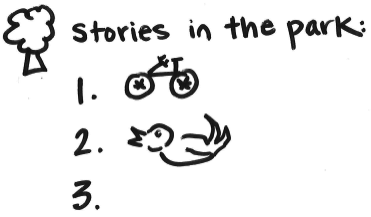 stories in the park:
1.
2.
3.